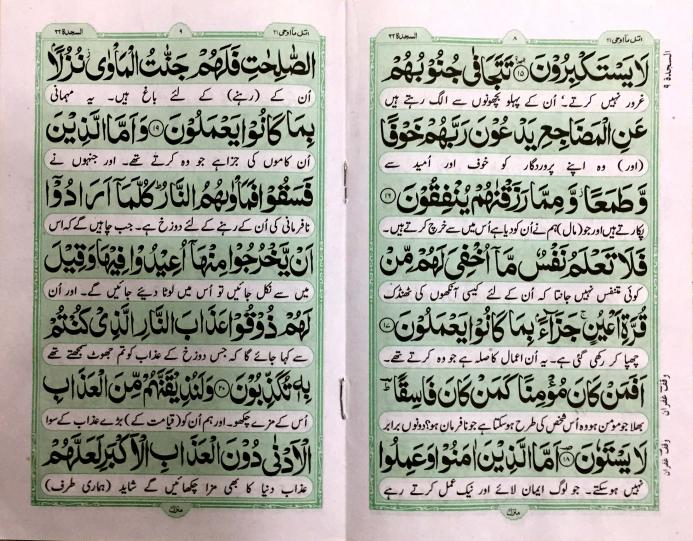 اتل ما اوحی ۲۱
۸
السجدة ۳۲
السجدة ۹
لَا يَسْتَكْبِرُوْنَ ۝۱۵ تَتَجَافٰى جُنُوْبُهُمْ
غرور نہیں کرتے۔ اُن کے پہلو بچھونوں سے الگ رہتے ہیں
عَنِ الْمَضَاجِعِ يَدْعُوْنَ رَبَّهُمْ خَوْفًا
(اور) وہ اپنے پروردگار کو خوف اور اُمید سے
وَّطَمَعًا وَّمِمَّا رَزَقْنٰهُمْ يُنْفِقُوْنَ ۝۱۶
پکارتے ہیں اور جو (مال) ہم نے اُن کو دیا ہے اُس میں سے خرچ کرتے ہیں۔
فَلَا تَعْلَمُ نَفْسٌ مَّآ اُخْفِيَ لَهُمْ مِّنْ
کوئی متنفس نہیں جانتا کہ اُن کے لئے کیسی آنکھوں کی ٹھنڈک
قُرَّةِ اَعْيُنٍ ۚ جَزَآءًۢ بِمَا كَانُوْا يَعْمَلُوْنَ ۝۱۷
چھپا کر رکھی گئی ہے۔ یہ اُن اعمال کا صلہ ہے جو وہ کرتے تھے۔
اَفَمَنْ كَانَ مُؤْمِنًا كَمَنْ كَانَ فَاسِقًا ؕ
وقف غفران
بھلا جو مؤمن ہو وہ اُس شخص کی طرح ہو سکتا ہے جو نافرمان ہو؟ دونوں برابر
لَا يَسْتَوٗنَ ۝۱۸ اَمَّا الَّذِيْنَ اٰمَنُوْا وَعَمِلُوا
وقف غفران
نہیں ہو سکتے۔ جو لوگ ایمان لائے اور نیک عمل کرتے رہے
منزل
اتل ما اوحی ۲۱
۹
السجدة ۳۲
الصّٰلِحٰتِ فَلَهُمْ جَنّٰتُ الْمَاْوٰى نُزُلًۢا
اُن کے (رہنے) کے لئے باغ ہیں۔ یہ مہمانی
بِمَا كَانُوْا يَعْمَلُوْنَ ۝۱۹ وَاَمَّا الَّذِيْنَ
اُن کاموں کی جزا ہے جو وہ کرتے تھے۔ اور جنہوں نے
فَسَقُوْا فَمَاْوٰىهُمُ النَّارُ ؕ كُلَّمَآ اَرَادُوْٓا
نافرمانی کی اُن کے رہنے کے لئے دوزخ ہے۔ جب چاہیں گے کہ اس
اَنْ يَّخْرُجُوْا مِنْهَآ اُعِيْدُوْا فِيْهَا وَقِيْلَ
میں سے نکل جائیں تو اُس میں لوٹا دیئے جائیں گے۔ اور اُن
لَهُمْ ذُوْقُوْا عَذَابَ النَّارِ الَّذِيْ كُنْتُمْ
سے کہا جائے گا کہ جس دوزخ کے عذاب کو تم جھوٹ سمجھتے تھے
بِهٖ تُكَذِّبُوْنَ ۝۲۰ وَلَنُذِيْقَنَّهُمْ مِّنَ الْعَذَابِ
اُس کے مزے چکھو۔ اور ہم اُن کو (قیامت کے) بڑے عذاب کے سوا
الْاَدْنٰى دُوْنَ الْعَذَابِ الْاَكْبَرِ لَعَلَّهُمْ
عذاب دنیا کا بھی مزا چکھائیں گے شاید (ہماری طرف)
منزل